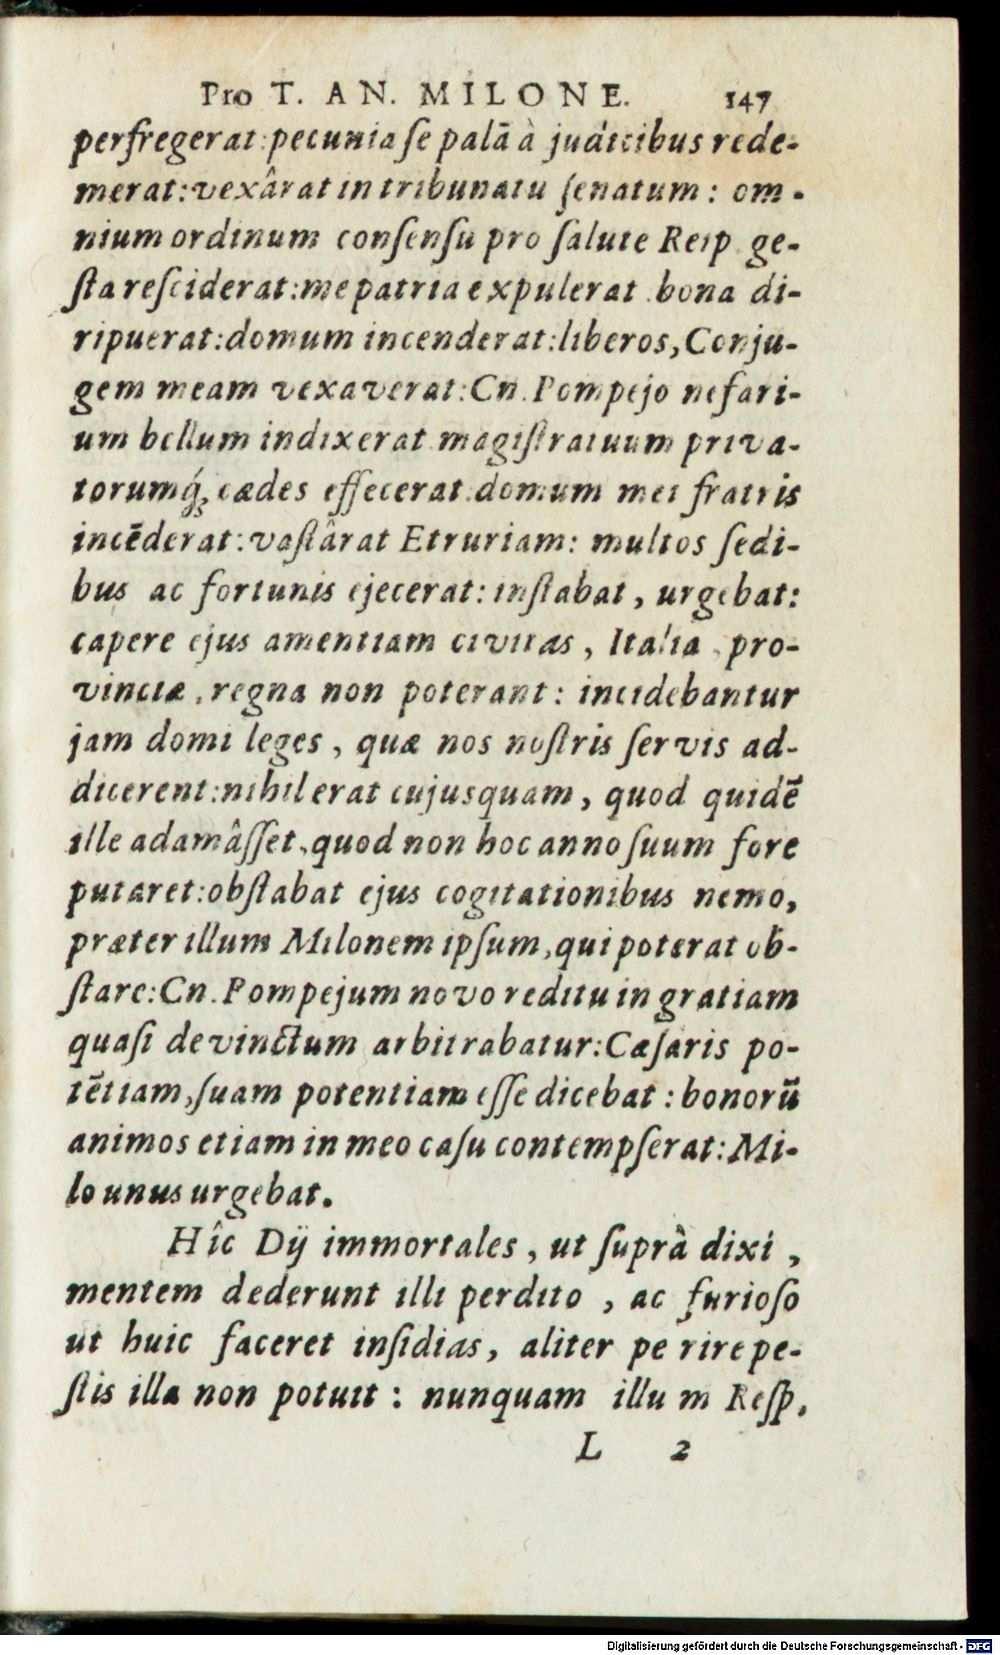 Pro T. AN. MILONE. 147
perfregerat: pecunia ſe palā à judicibus rede-
merat: vexârat in tribunatu ſenatum: om-
nium ordinum conſenſu pro ſalute Reip. ge-
ſta reſciderat: me patria expulerat. bona di-
ripuerat: domum incenderat: liberos, Conju-
gem meam vexaverat: Cn. Pompejo nefari-
um bellum indixerat. magiſtratuum priva-
torumq́; cædes effecerat. domum mei fratris
incēderat: vaſtârat Etruriam: multos ſedi-
bus ac fortunis ejecerat: inſtabat, urgebat:
capere ejus amentiam civitas, Italia, pro-
vinciæ, regna non poterant: incidebantur
jam domi leges, quæ nos noſtris ſervis ad-
dicerent: nihil erat cujusquam, quod quidē
ille adamâſſet, quod non hoc anno ſuum fore
putaret: obſtabat ejus cogitationibus nemo,
præter illum Milonem ipſum, qui poterat ob-
ſtare: Cn. Pompejum novo reditu in gratiam
quaſi devinctum arbitrabatur: Cæſaris po-
tētiam, ſuam potentiam eſſe dicebat: bonorū
animos etiam in meo caſu contempſerat: Mi-
lo unus urgebat.
Hîc Dij immortales, ut ſuprà dixi,
mentem dederunt illi perdito, ac furioſo
ut huic faceret inſidias, aliter pe rire pe-
ſtis illa non potuit: nunquam illu m Reſp.
L 2
Digitalisierung gefördert durch die Deutsche Forschungsgemeinschaft - DFG